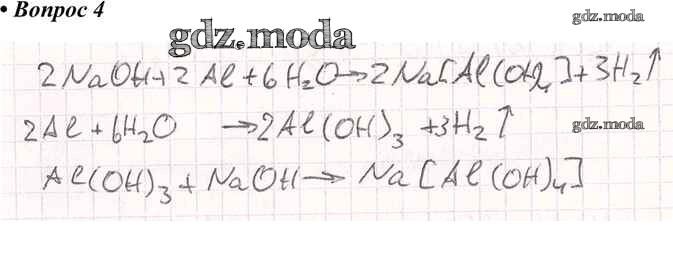 • Вопрос 4
gdz.moda
gdz.moda
2NaOH+2Al+6H₂O→2Na[Al(OH)₄]+3H₂↑
2Al+6H₂O →2Al(OH)₃+3H₂↑
gdz.moda
Al(OH)₃+NaOH→Na[Al(OH)₄]